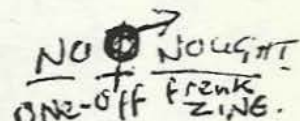 NO NOUGHT
ONE-OFF frenk
ZINE.